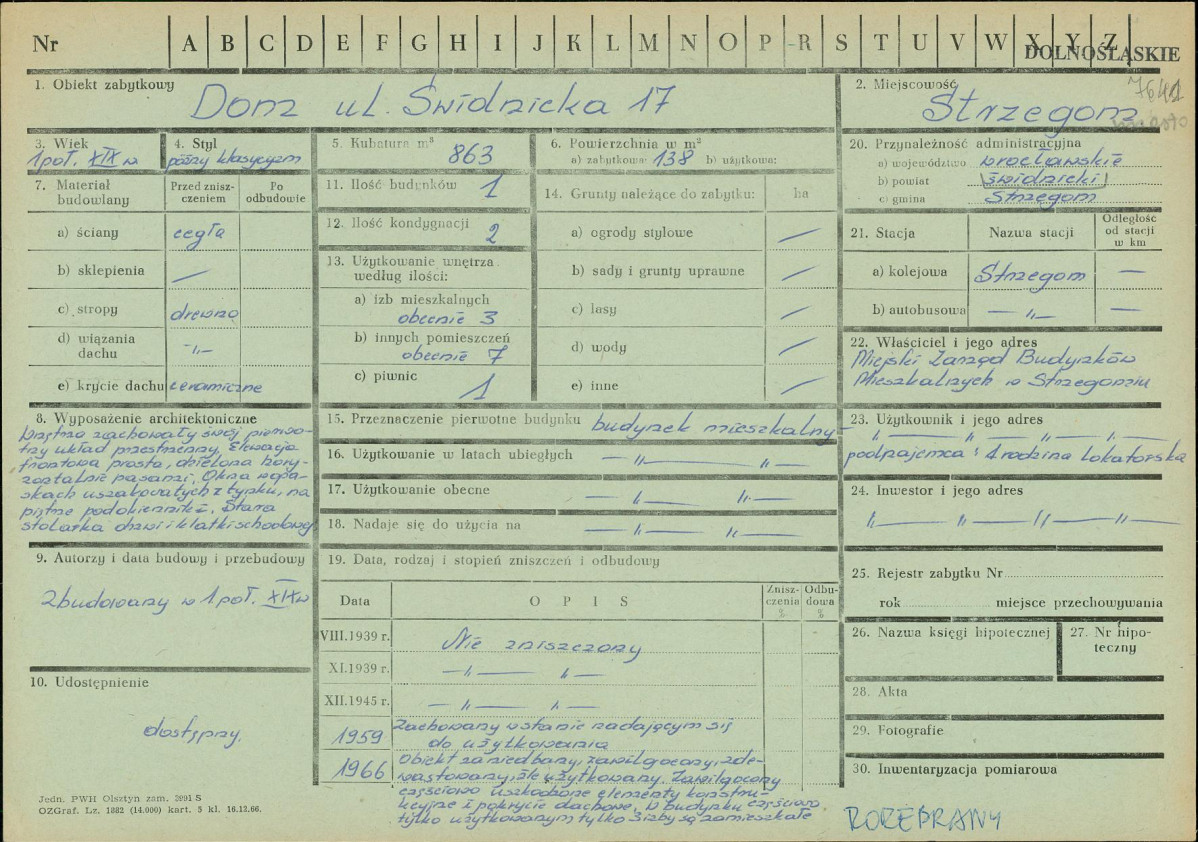 Nr A B C D E F G H I J K L M N O P-R S T U V W X Y Z
DOLNOŚLĄSKIE
1. Obiekt zabytkowy Dom ul. Świdnicka 17
2. Miejscowość Strzegom
7642
miasto
3. Wiek
1 poł. XIX w
4. Styl
późny klasycyzm
5. Kubatura m³ 863
6. Powierzchnia w m²
a) zabytkowa: 138 b) użytkowa:
7. Materiał budowlany
Przed znisz-
czeniem
Po
odbudowie
a) ściany cegła
b) sklepienia —
c) stropy drewno
d) wiązania
dachu -„-
e) krycie dachu ceramiczne
8. Wyposażenie architektoniczne
Wnętrze zachowały swój pierwo-
tny układ przestrzenny, Elewacja
frontowa prosta, dzielona hory-
zontalnie pasami. Okna w opa-
skach uszakowatych z tynku, na
piętrze podokienniki, Stara
stolarka drzwi i klatki schodowej
9. Autorzy i data budowy i przebudowy
Zbudowany w 1 poł. XIX w
10. Udostępnienie
dostępny.
Jedn. PWH Olsztyn zam. 3991 S
OZGraf. Lz. 1882 (14.000) kart. 3 kl. 16.12.66.
11. Ilość budynków 1
12. Ilość kondygnacji 2
13. Użytkowanie wnętrza
według ilości:
a) izb mieszkalnych
obecnie 3
b) innych pomieszczeń
obecnie 7
c) piwnic 1
14. Grunty należące do zabytku: ha
a) ogrody stylowe —
b) sady i grunty uprawne —
c) lasy —
d) wody —
e) inne —
15. Przeznaczenie pierwotne budynku budynek mieszkalny
16. Użytkowanie w latach ubiegłych — „ — „ —
17. Użytkowanie obecne — „ — „ —
18. Nadaje się do użycia na — „ — „ —
19. Data, rodzaj i stopień zniszczeń i odbudowy
Data
OPIS
Znisz-
czenia
%
Odbu-
dowa
%
VIII.1939 r. Nie zniszczony
XI.1939 r. — „ — „ —
XII.1945 r. — „ — „ —
1959 Zachowany w stanie nadającym się
do użytkowania
1966 Obiekt zaniedbany, zawilgocony, zde-
wastowany, źle użytkowany. Zawilgocony
częściowo uszkodzone elementy konstru-
kcyjne i pokrycie dachowe, W budynku częściowo
tylko użytkowanym tylko 3 izby są zamieszkałe
20. Przynależność administracyjna
a) województwo wrocławskie
b) powiat świdnicki
c) gmina Strzegom
21. Stacja
Nazwa stacji
Odległość
od stacji
w km
a) kolejowa Strzegom —
b) autobusowa — „ — —
22. Właściciel i jego adres
Miejski Zarząd Budynków
Mieszkalnych w Strzegomiu
23. Użytkownik i jego adres
„ — „ — „ — „ —
podnajemca: 1 rodzina lokatorska
24. Inwestor i jego adres
„ — „ — „ — „ —
25. Rejestr zabytku Nr
rok miejsce przechowywania
26. Nazwa księgi hipotecznej
27. Nr hipo-
teczny
28. Akta
29. Fotografie
30. Inwentaryzacja pomiarowa
ROZEBRANY